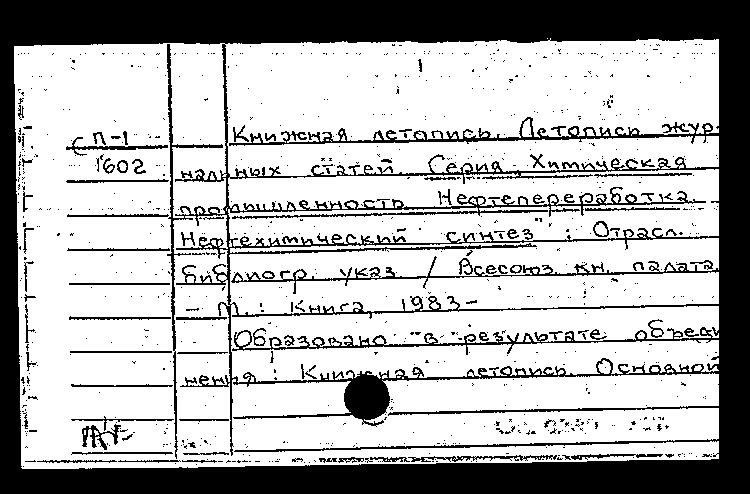 1
С П-1
1602
Книжная летопись. Летопись жур-
нальных статей. Серия „Химическая
промышленность. Нефтепереработка.
Нефтехимический синтез" : Отрасл.
библиогр. указ. / Всесоюз. кн. палата.
– М.: Книга, 1983–
Образовано в результате объеди
нения : Книжная летопись. Основной